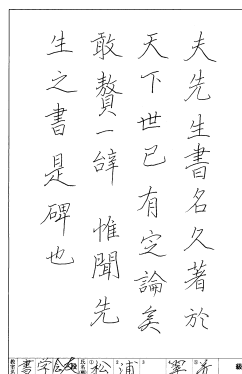 夫先生書名久著於
天下世已有定論矣
敢贅一辞 惟聞先
生之書是碑也
級
段
松浦
書学会